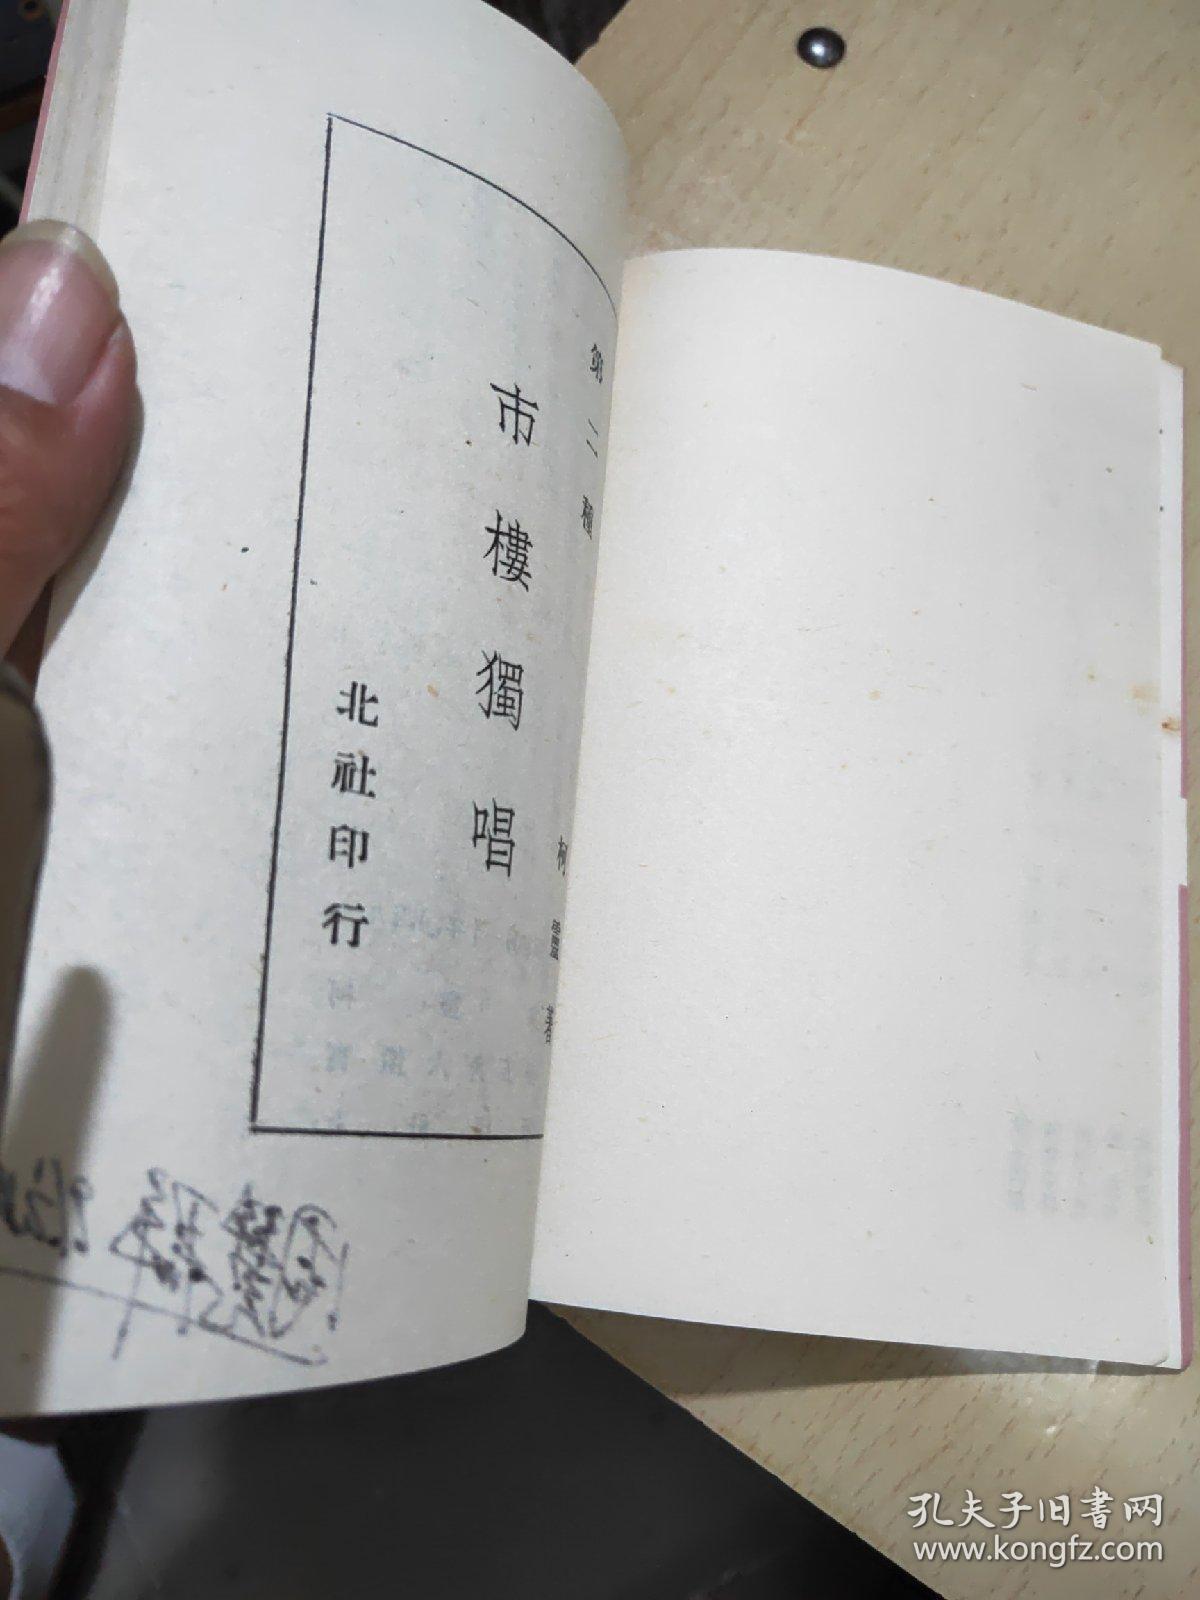 第二種
市樓獨唱
柯
著
北社印行
孔夫子旧书网
www.kongfz.com